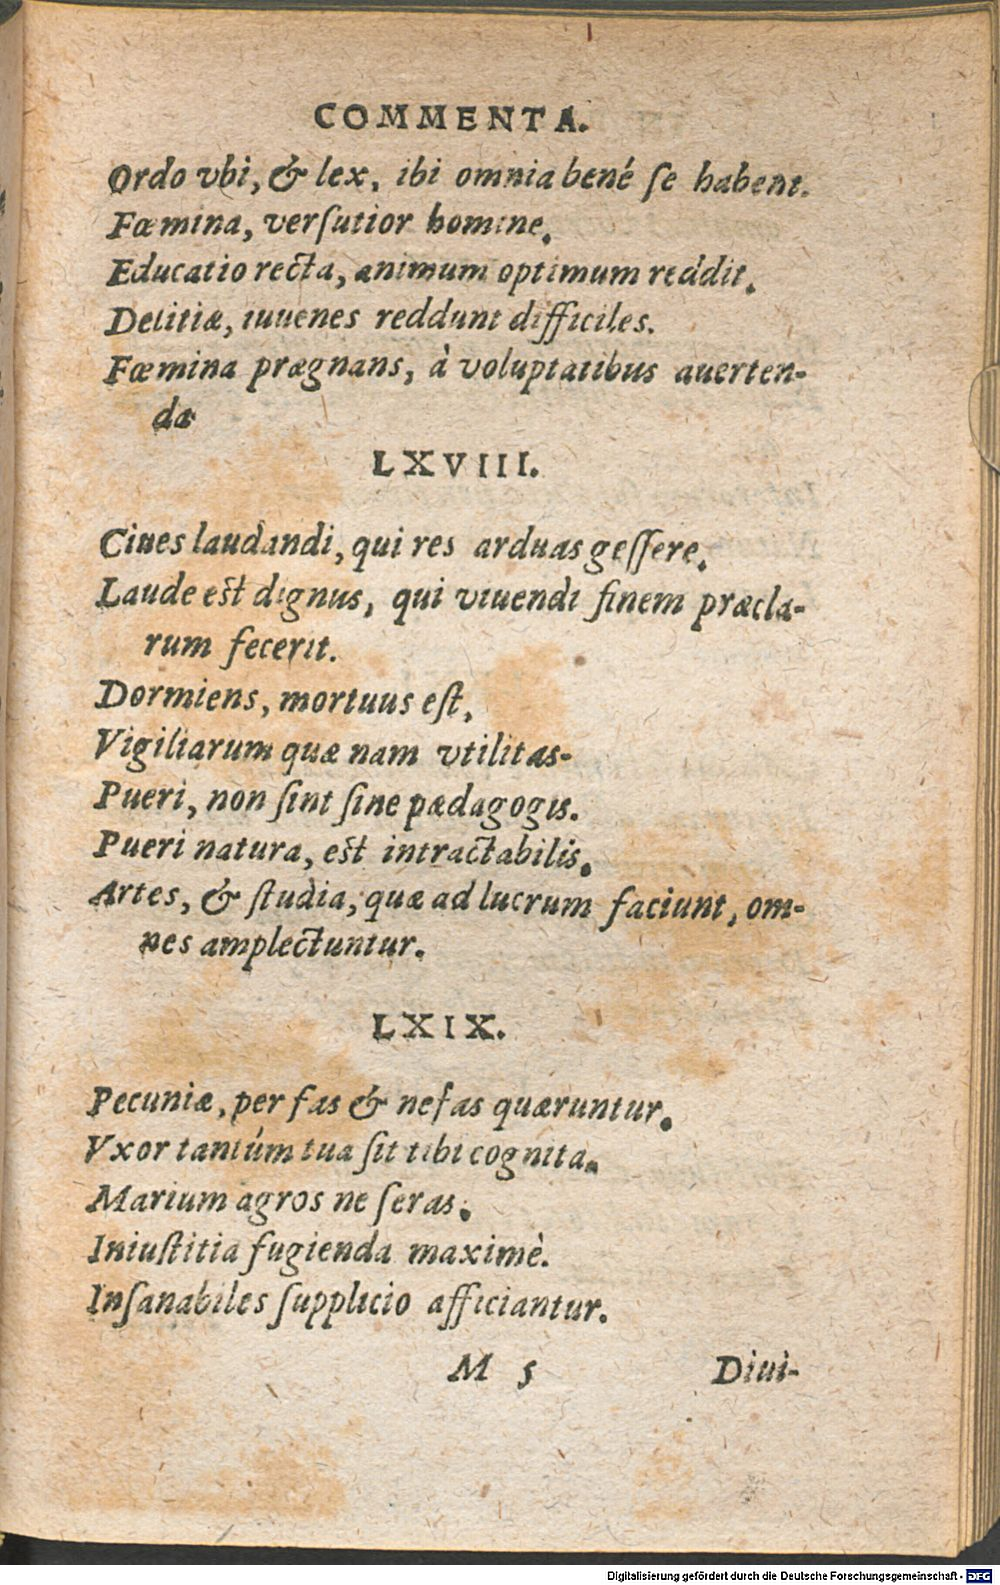 COMMENTA.
Ordo vbi, & lex, ibi omnia bené ſe habent.
Fœmina, verſutior homine.
Educatio recta, animum optimum reddit.
Delitiæ, iuuenes reddunt difficiles.
Fœmina prægnans, à voluptatibus auerten-
da
LXVIII.
Ciues laudandi, qui res arduas geſſere.
Laude est dignus, qui viuendi finem præcla-
rum fecerit.
Dormiens, mortuus eſt,
Vigiliarum quæ nam vtilitas-
Pueri, non ſint ſine pædagogis.
Pueri natura, est intractabilis.
Artes, & ſtudia, quæ ad lucrum faciunt, om-
nes amplectuntur.
LXIX.
Pecuniæ, per fas & nefas quæruntur.
Vxor tantúm tua ſit tibi cognita.
Marium agros ne ſeras.
Iniuſtitia fugienda maximè.
Inſanabiles ſupplicio afficiantur.
M 5 Diui-
Digitalisierung gefördert durch die Deutsche Forschungsgemeinschaft - DFG